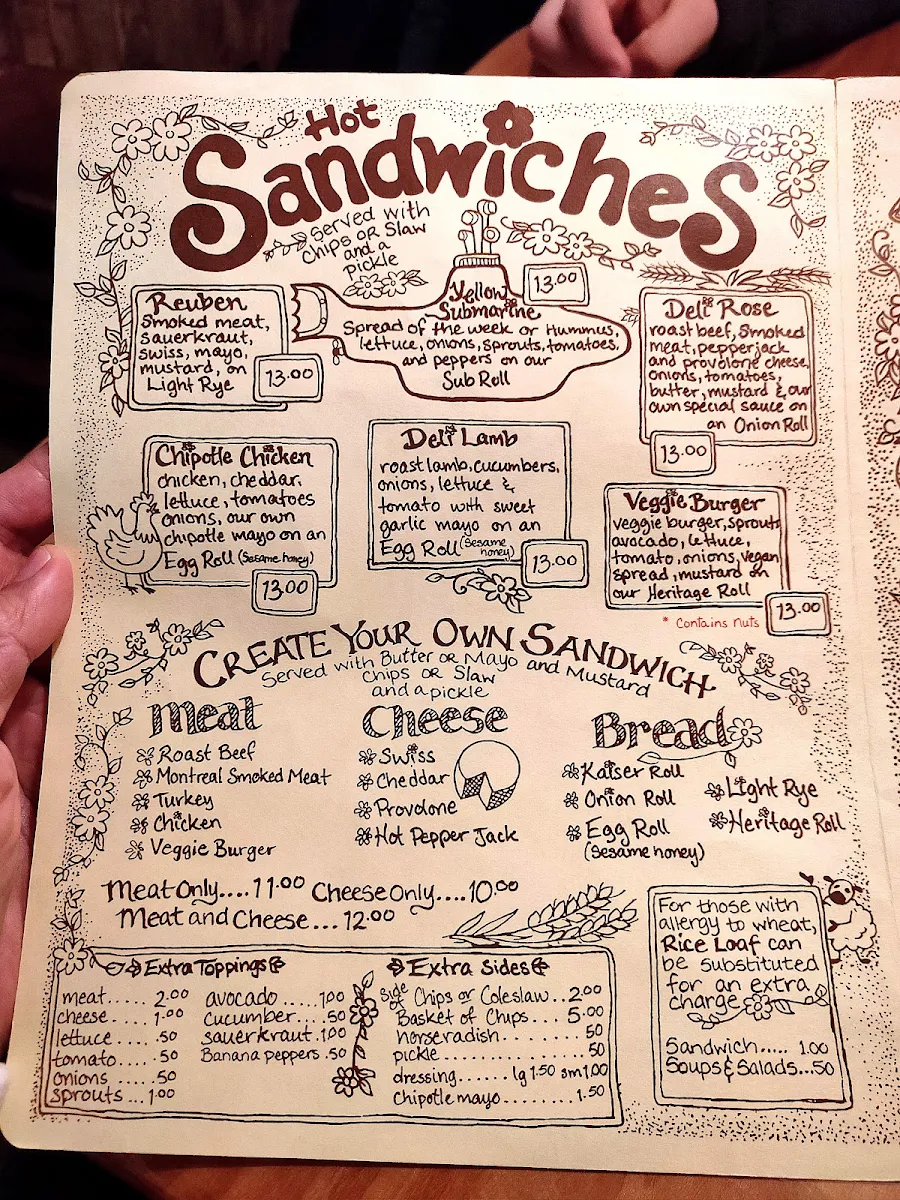 Hot
Sandwiches
Served with
Chips OR Slaw
and a
pickle
Reuben
Smoked meat,
sauerkraut,
swiss, mayo,
mustard, on
Light Rye
13.00
Yellow
Submarine
Spread of the week or Hummus,
lettuce, onions, sprouts, tomatoes,
and peppers on our
Sub Roll
13.00
Deli Rose
roast beef, Smoked
meat, pepperjack
and provolone cheese,
onions, tomatoes,
butter, mustard & our
own special sauce on
an Onion Roll
13.00
Chipotle Chicken
chicken, cheddar,
lettuce, tomatoes
onions, our own
chipotle mayo on an
Egg Roll (Sesame honey)
13.00
Deli Lamb
roast lamb, cucumbers,
onions, lettuce &
tomato with sweet
garlic mayo on an
Egg Roll (Sesame honey)
13.00
Veggie Burger
veggie burger, sprouts
avocado, lettuce,
tomato, onions, vegan
spread, mustard on
our Heritage Roll
13.00
* Contains nuts
CREATE YOUR OWN SANDWICH
Served with Butter OR Mayo and Mustard
Chips OR Slaw
and a pickle
Meat
Roast Beef
Montreal Smoked Meat
Turkey
Chicken
Veggie Burger
Cheese
Swiss
Cheddar
Provolone
Hot Pepper Jack
Bread
Kaiser Roll
Onion Roll
Egg Roll
(Sesame honey)
Light Rye
Heritage Roll
Meat Only....11.00 Cheese Only....10.00
Meat and Cheese...12.00
Extra Toppings
meat.....2.00
cheese....1.00
lettuce.....50
tomato.....50
onions.....50
sprouts...1.00
avocado.....1.00
cucumber....50
sauerkraut.1.00
Banana peppers.50
Extra Sides
Side of Chips or Coleslaw..2.00
Basket of Chips....5.00
horseradish............50
pickle....................50
dressing.......lg 1.50 sm 1.00
chipotle mayo.........1.50
For those with
allergy to wheat,
Rice Loaf can
be substituted
for an extra
charge
Sandwich.....1.00
Soups & Salads...50